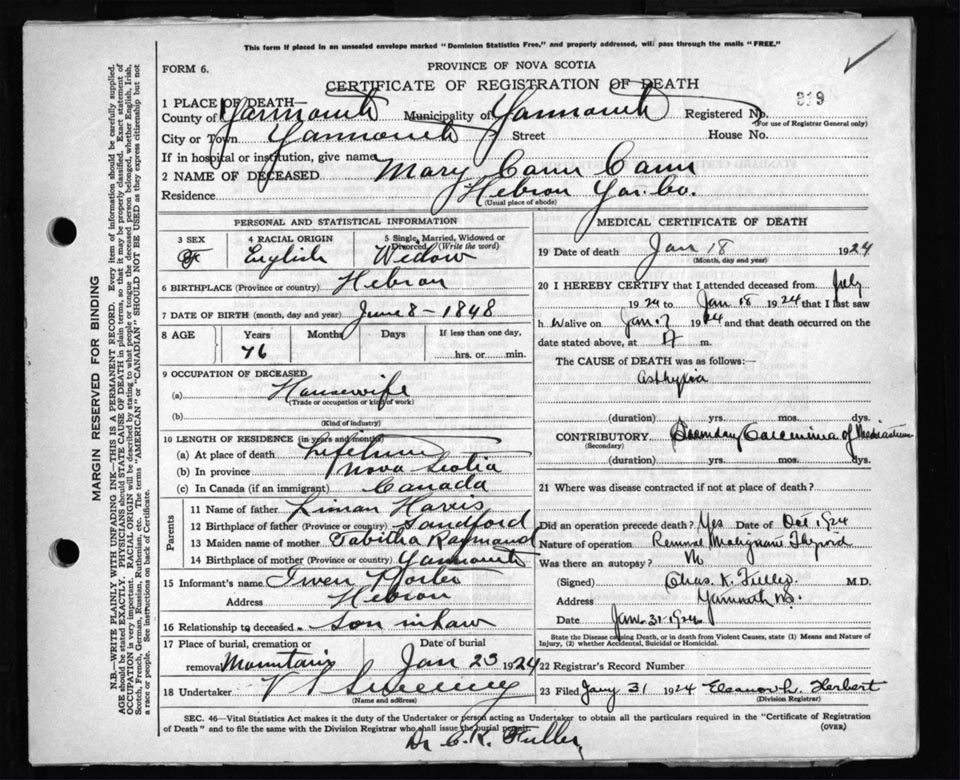 This form if placed in an unsealed envelope marked "Dominion Statistics Free," and properly addressed, will pass through the mails "FREE."
FORM 6.
PROVINCE OF NOVA SCOTIA
CERTIFICATE OF REGISTRATION OF DEATH
319
1 PLACE OF DEATH—
County of Yarmouth Municipality of Yarmouth Registered No.
(For use of Registrar General only)
City or Town Yarmouth Street House No.
If in hospital or institution, give name
2 NAME OF DECEASED Mary Cann Cann
Residence Hebron Yar. Co.
(Usual place of abode)
PERSONAL AND STATISTICAL INFORMATION
3 SEX 4 RACIAL ORIGIN 5 Single, Married, Widowed or Divorced (Write the word)
F English Widow
6 BIRTHPLACE (Province or country) Hebron
7 DATE OF BIRTH (month, day and year) June 8 - 1848
8 AGE Years Months Days If less than one day,
76 hrs. or min.
9 OCCUPATION OF DECEASED
(a) Housewife
(Trade or occupation or kind of work)
(b)
(Kind of industry)
10 LENGTH OF RESIDENCE (in years and months)
(a) At place of death Lifetime
(b) In province Nova Scotia
(c) In Canada (if an immigrant) Canada
Parents
11 Name of father Liman Harris
12 Birthplace of father (Province or country) Sandford
13 Maiden name of mother Tabitha Raymond
14 Birthplace of mother (Province or country) Yarmouth
15 Informant's name Porter
Address Hebron
16 Relationship to deceased Son in law
17 Place of burial, cremation or removal Date of burial
Mountain Jan 23 1924
18 Undertaker V S Sweeney
(Name and address)
MEDICAL CERTIFICATE OF DEATH
19 Date of death Jan 18 1924
(Month, day and year)
20 I HEREBY CERTIFY that I attended deceased from July
1924 to Jan. 18 1924 that I last saw
h alive on Jan. 1924 and that death occurred on
date stated above, at m.
The CAUSE of DEATH was as follows:—
Asthyxia
(duration) yrs. mos. dys.
CONTRIBUTORY Secondary Carcinoma of Mediastinum
(Secondary)
(duration) yrs. mos. dys.
21 Where was disease contracted if not at place of death?
Did an operation precede death? Yes Date of Oct 1924
Nature of operation Removal Malignant Thyroid
Was there an autopsy? No
(Signed) Chas. K. Fuller M.D.
Address Yarmouth N.S.
Date Jan. 31. 1924
State the Disease causing Death, or in death from Violent Causes, state (1) Means and Nature of Injury, (2) whether Accidental, Suicidal or Homicidal.
22 Registrar's Record Number
23 Filed Jany 31 1924 Eleanor L. Herbert
(Division Registrar)
SEC. 46—Vital Statistics Act makes it the duty of the Undertaker or person acting as Undertaker to obtain all the particulars required in the "Certificate of Registration
of Death" and to file the same with the Division Registrar who shall issue the burial permit. (OVER)
Dr C. K. Fuller
MARGIN RESERVED FOR BINDING
N.B.—WRITE PLAINLY WITH UNFADING INK—THIS IS A PERMANENT RECORD. Every item of information should be carefully supplied.
AGE should be stated EXACTLY. PHYSICIANS should STATE CAUSE OF DEATH in plain terms, so that it may be properly classified. Exact statement of
OCCUPATION is very important. RACIAL ORIGIN will be described by stating to what people or tongue the deceased person belonged, whether English, Irish,
Scotch, French, German, Russian, Ruthenian, etc. The terms "AMERICAN" or "CANADIAN" SHOULD NOT BE USED as they express citizenship but not
a race or people. See instructions on back of Certificate.